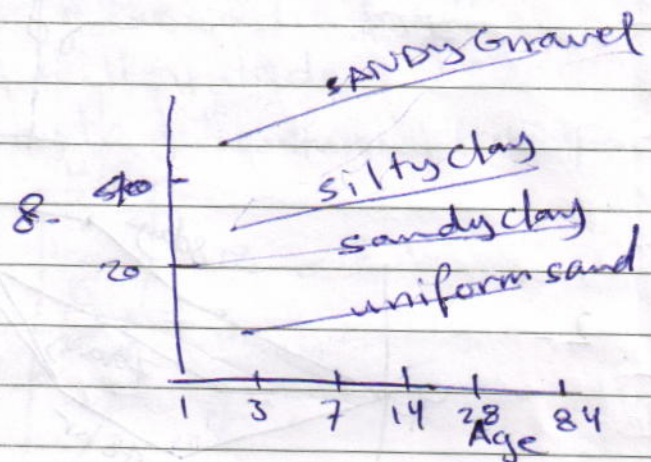 SANDY Gravel
silty clay
8-
sandy clay
20
uniform sand
1 3 7 14 28 84
Age